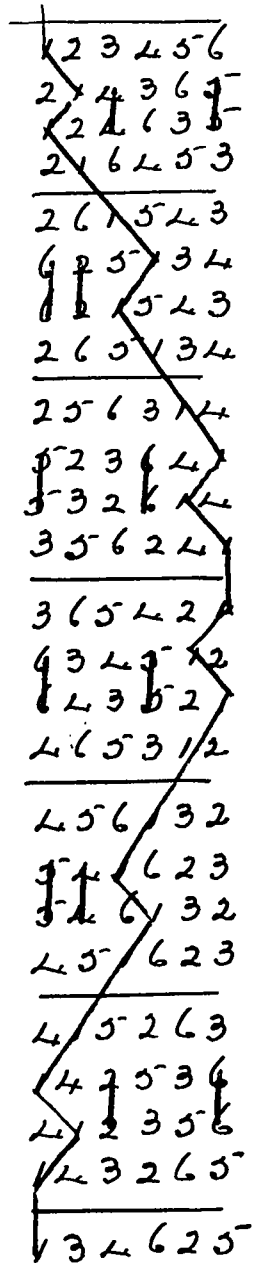 1 2 3 4 5 6
2 1 4 3 6 5
1 2 4 6 3 5
2 1 6 4 5 3
2 6 1 5 4 3
6 2 5 1 3 4
6 2 1 5 4 3
2 6 5 1 3 4
2 5 6 3 1 4
5 2 3 6 4 1
5 3 2 6 1 4
3 5 6 2 4 1
3 6 5 4 2 1
6 3 4 5 1 2
6 4 3 5 2 1
4 6 5 3 1 2
4 5 6 1 3 2
5 4 1 6 2 3
5 4 6 1 3 2
4 5 1 6 2 3
4 1 5 2 6 3
1 4 2 5 3 6
4 1 2 3 5 6
1 4 3 2 6 5
1 3 4 6 2 5